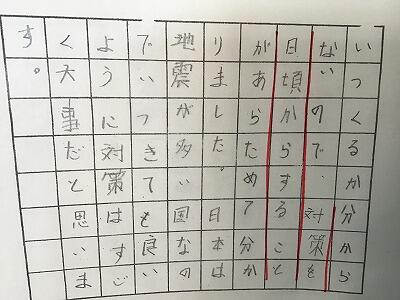 いつくるか分から
ないので、対策を
日頃からすること
があらためて分か
りました。日本は
地震が多い国なの
でいつきても良い
ように対策はすご
く大事だと思いま
す。